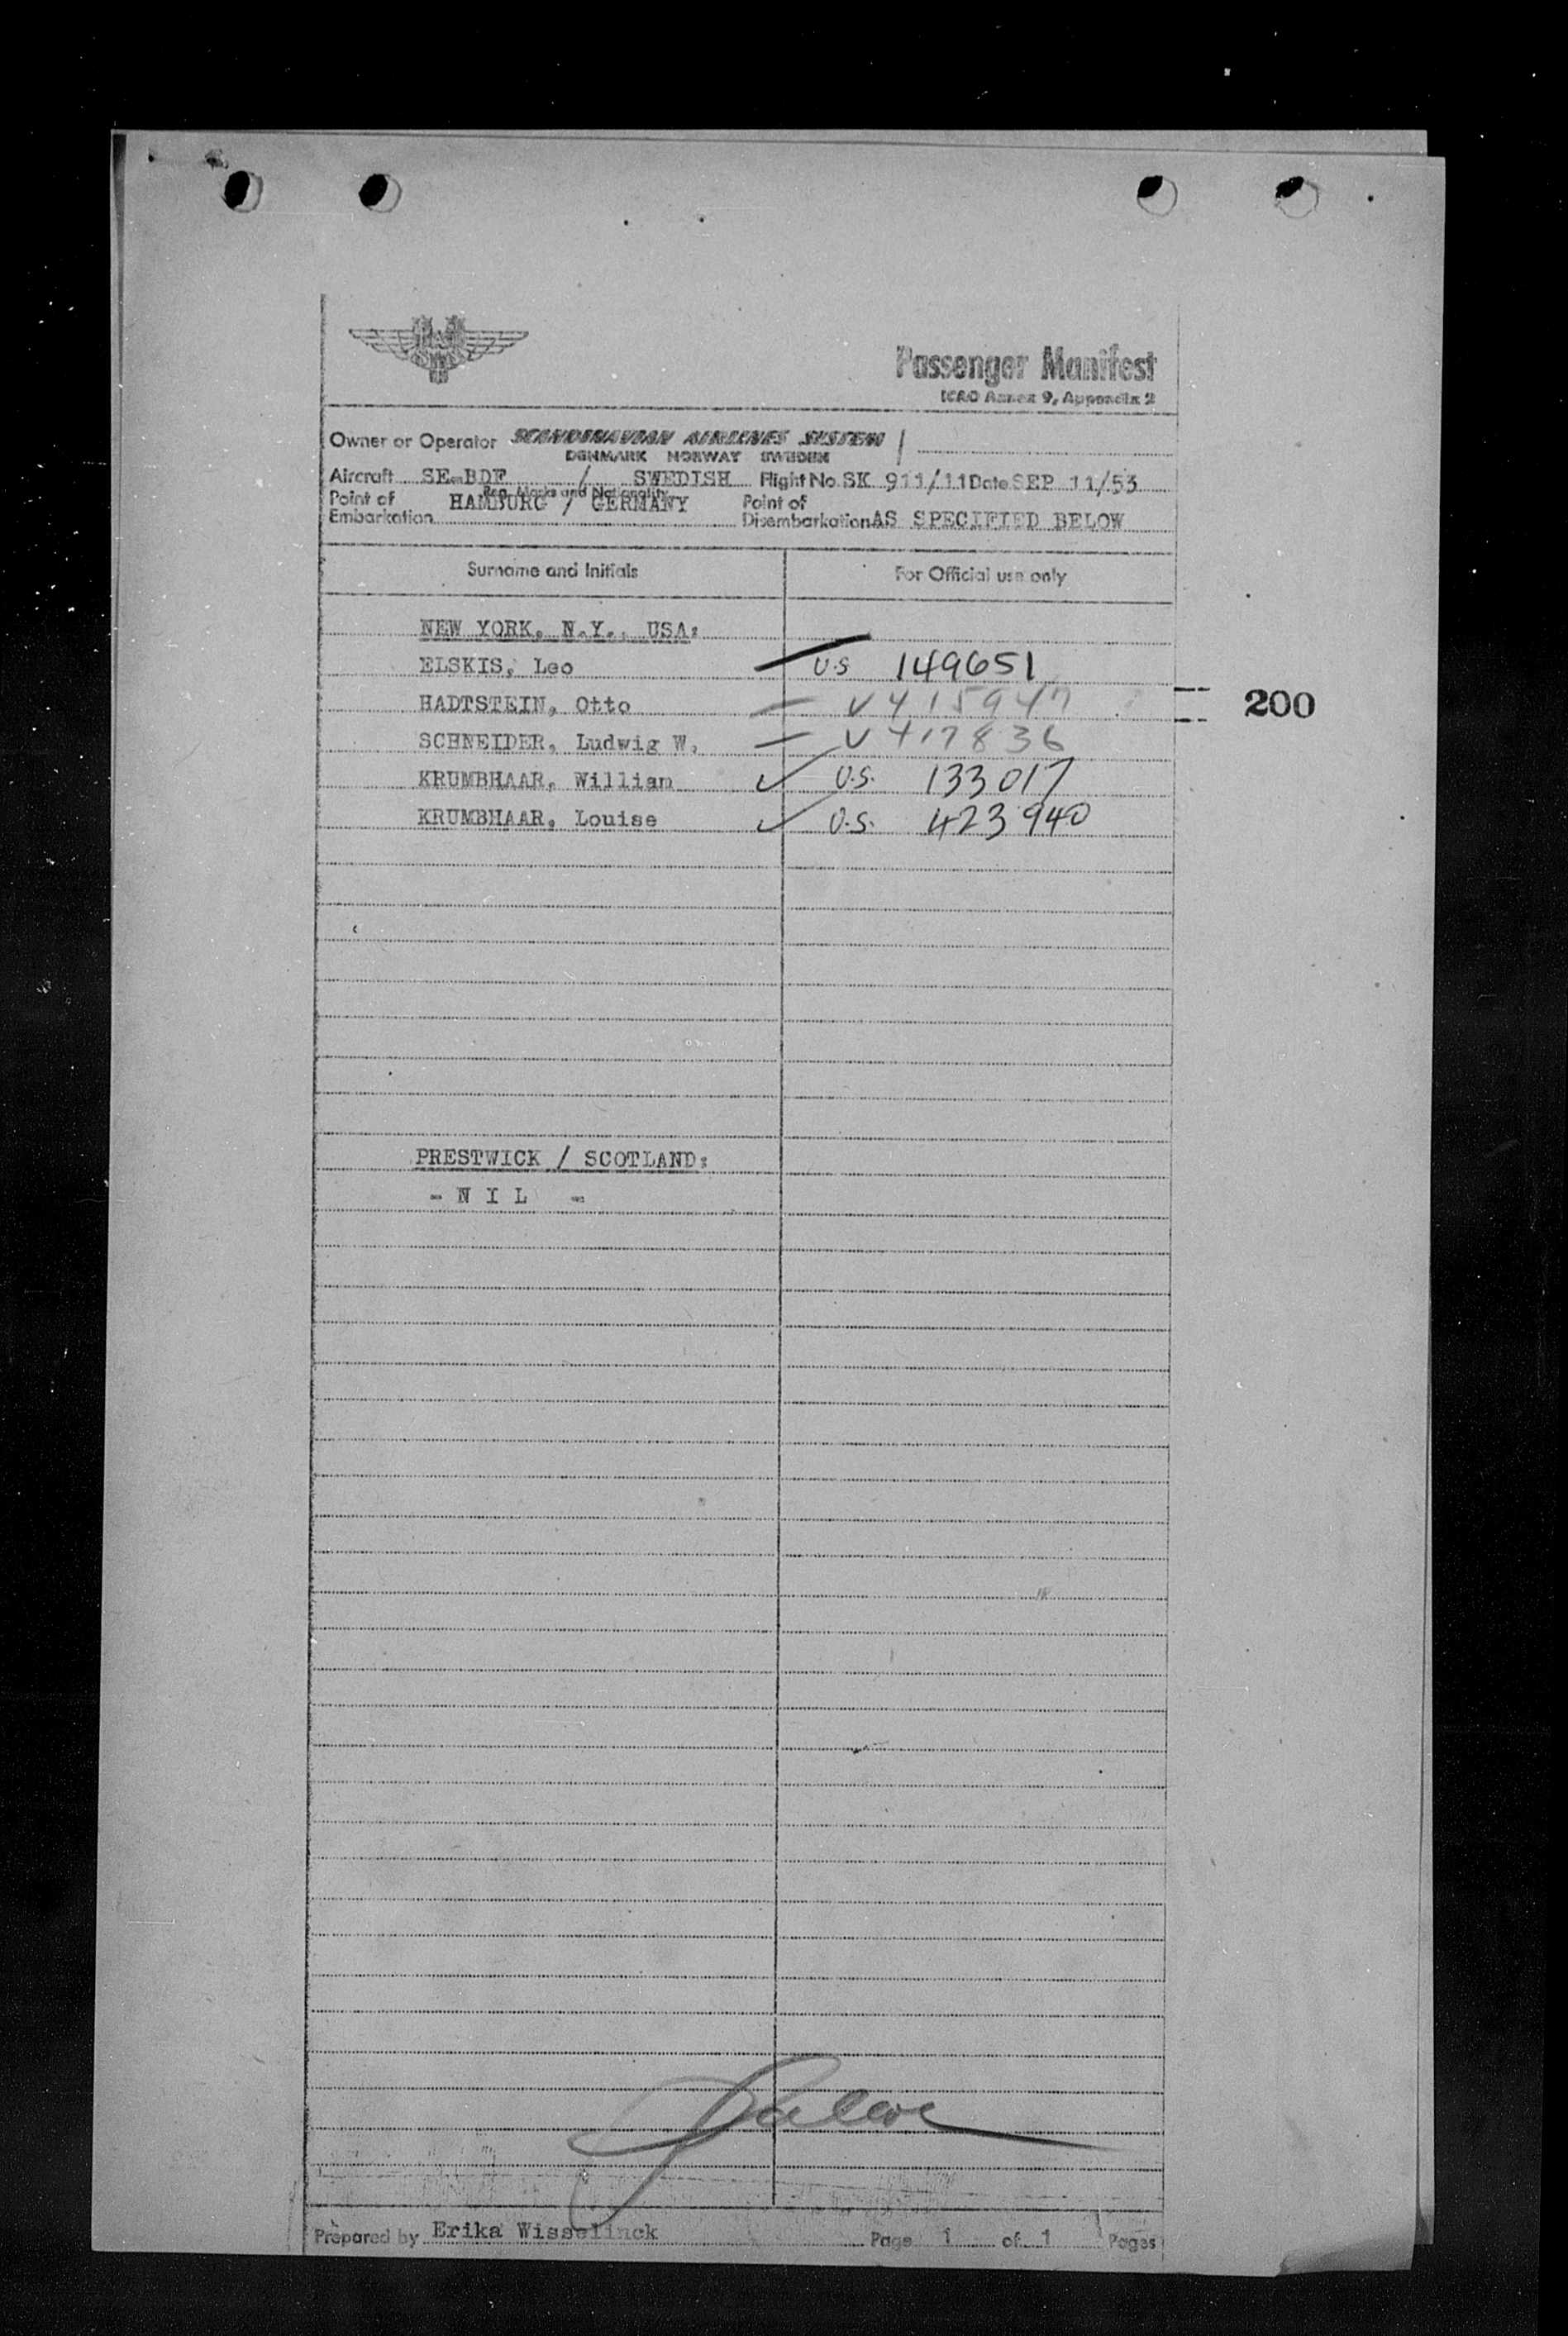 Passenger Manifest
ICAO Annex 9, Appendix 2
Owner or Operator SCANDINAVIAN AIRLINES SYSTEM
DENMARK NORWAY SWEDEN
Aircraft SE-BDF / SWEDISH Flight No. SK 911/11 Date SEP 11/53
Reg. Marks and Nationality
Point of Embarkation HAMBURG / GERMANY Point of Disembarkation AS SPECIFIED BELOW
Surname and Initials For Official use only
NEW YORK, N.Y., USA:
ELSKIS, Leo U.S 149651
HADTSTEIN, Otto V415947 200
SCHNEIDER, Ludwig W. V417836
KRUMBHAAR, William U.S. 133017
KRUMBHAAR, Louise U.S. 423940
PRESTWICK / SCOTLAND:
- N I L -
Prepared by Erika Wisselinck Page 1 of 1 Pages